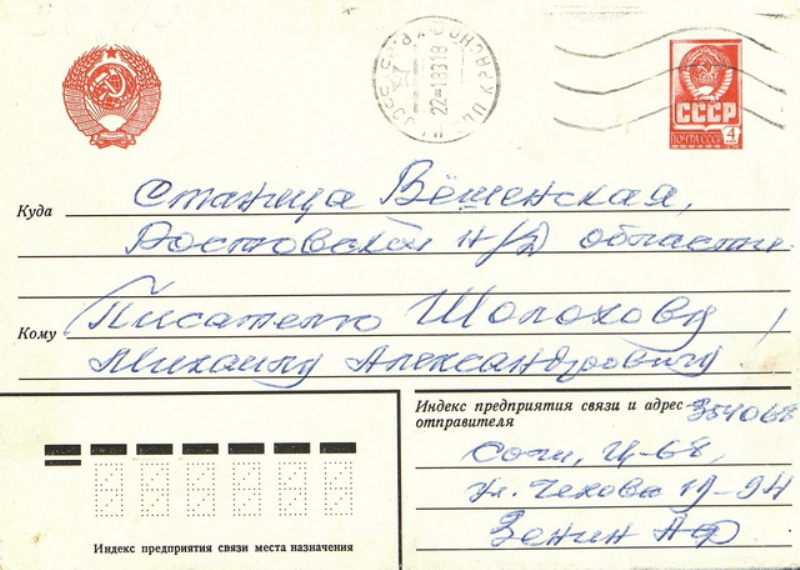 СССР
ПОЧТА СССР 4
22 183 18
Куда Станица Вёшенская,
Ростовской н/Д области.
Кому Писателю Шолохову
Михаилу Александровичу!
Индекс предприятия связи и адрес отправителя 354068
Сочи, Ц-68,
ул. Чехова
Зенин АФ
Индекс предприятия связи места назначения